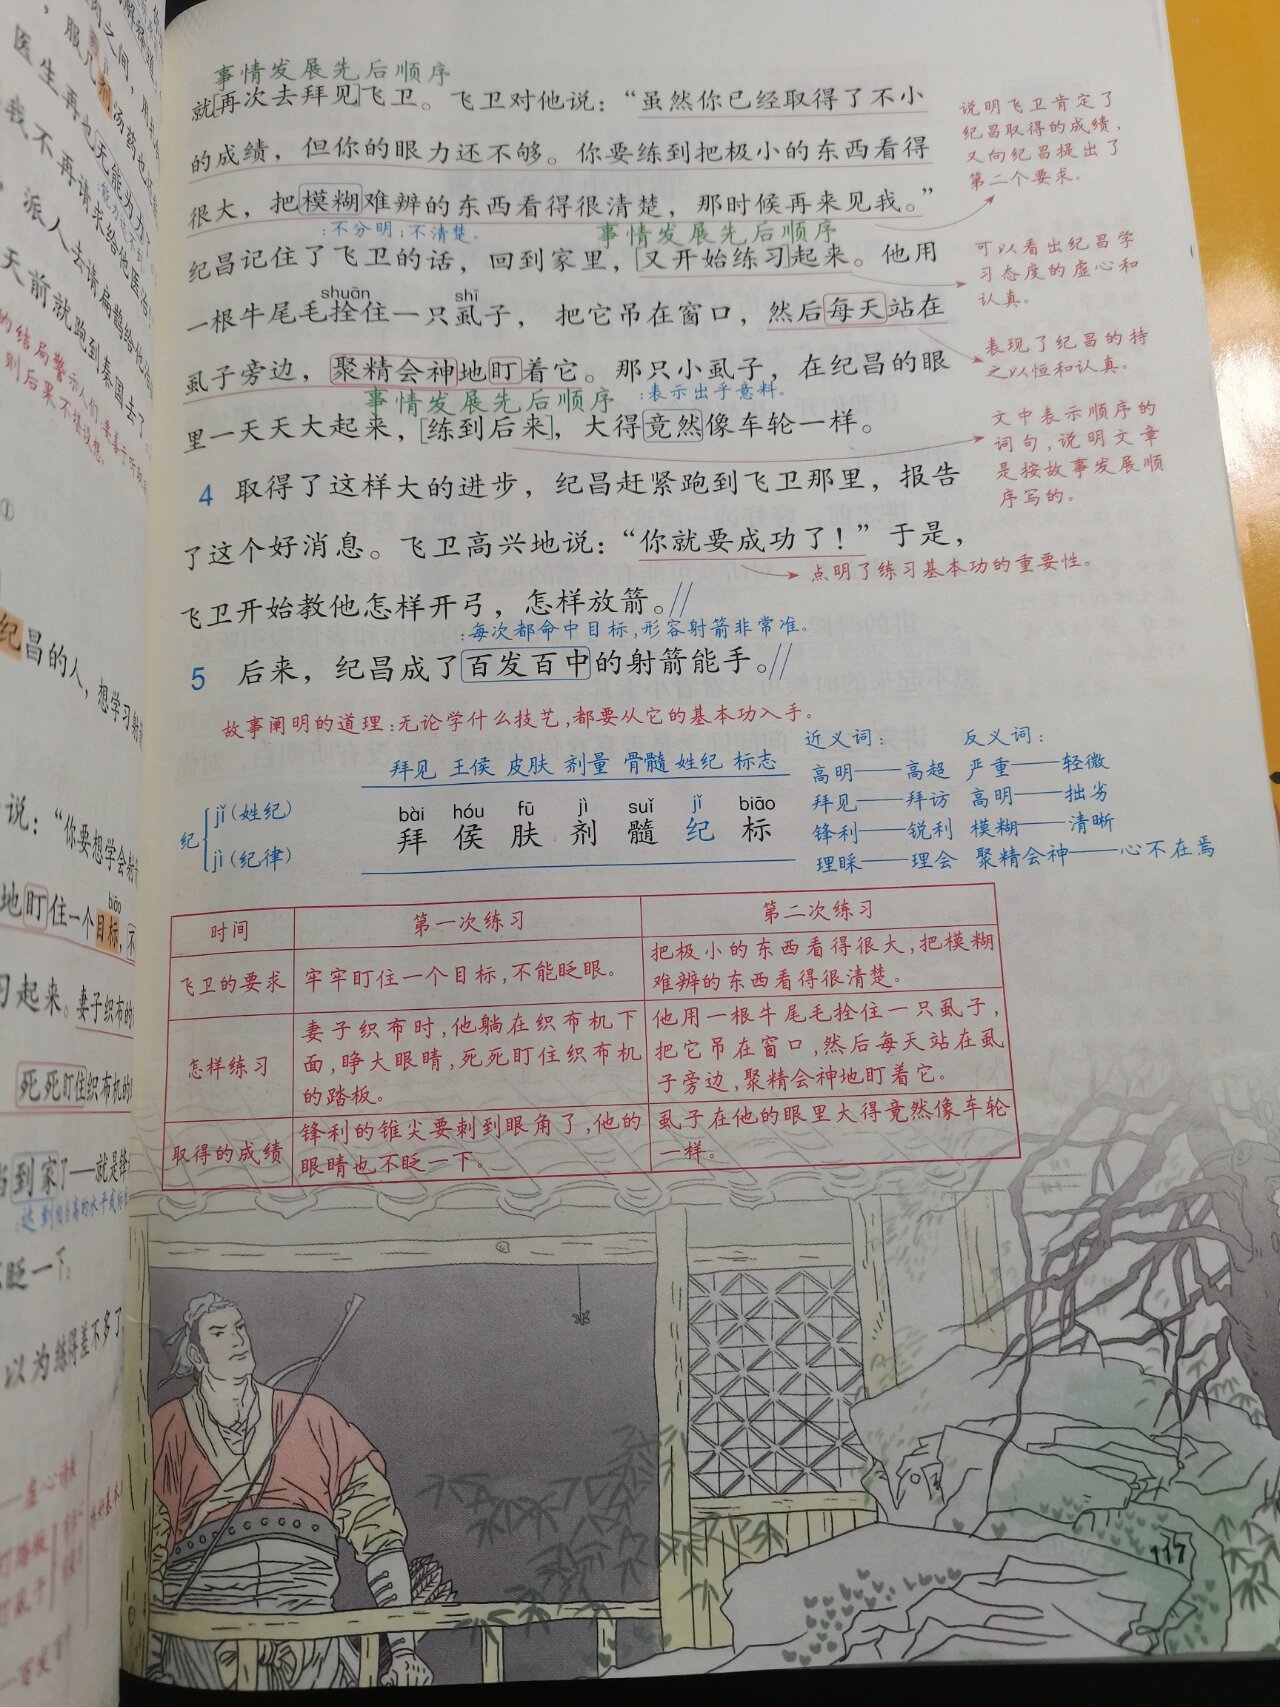 事情发展先后顺序
就[再次去拜见]飞卫。飞卫对他说：“虽然你已经取得了不小
的成绩，但你的眼力还不够。你要练到把极小的东西看得
很大，把模糊难辨的东西看得很清楚，那时候再来见我。”
说明飞卫肯定了
纪昌取得的成绩，
又向纪昌提出了
第二个要求。
:不分明;不清楚。
事情发展先后顺序
纪昌记住了飞卫的话，回到家里，[又开始练习]起来。他用
可以看出纪昌学
习态度的虚心和
认真。
shuān shī
一根牛尾毛拴住一只虱子，把它吊在窗口，然后每天站在
虱子旁边，聚精会神地盯着它。那只小虱子，在纪昌的眼
表现了纪昌的持
之以恒和认真。
事情发展先后顺序
:表示出乎意料。
里一天天大起来，[练到后来]，大得竟然像车轮一样。
文中表示顺序的
词句，说明文章
是按故事发展顺
序写的。
4 取得了这样大的进步，纪昌赶紧跑到飞卫那里，报告
了这个好消息。飞卫高兴地说：“你就要成功了！”于是，
点明了练习基本功的重要性。
飞卫开始教他怎样开弓，怎样放箭。//
:每次都命中目标,形容射箭非常准。
5 后来，纪昌成了百发百中的射箭能手。//
故事阐明的道理:无论学什么技艺,都要从它的基本功入手。
拜见 王侯 皮肤 剂量 骨髓 姓纪 标志
bài hóu fū jì suǐ jǐ biāo
拜 侯 肤 剂 髓 纪 标
纪
jǐ(姓纪)
jì(纪律)
近义词: 反义词:
高明——高超 严重——轻微
拜见——拜访 高明——拙劣
锋利——锐利 模糊——清晰
理睬——理会 聚精会神——心不在焉
时间 第一次练习 第二次练习
飞卫的要求
牢牢盯住一个目标,不能眨眼。
把极小的东西看得很大,把模糊
难辨的东西看得很清楚。
怎样练习
妻子织布时,他躺在织布机下
面,睁大眼睛,死死盯住织布机
的踏板。
他用一根牛尾毛拴住一只虱子,
把它吊在窗口,然后每天站在虱
子旁边,聚精会神地盯着它。
取得的成绩
锋利的锥尖要刺到眼角了,他的
眼睛也不眨一下。
虱子在他的眼里大得竟然像车轮
一样。
117
服几剂汤药也
医生再也无能为力
我不再请求给他医治
派人去请扁鹊给他
天前就跑到秦国去了
①
纪昌的人，想学习射
说：“你要想学会射
biāo
地盯住一个目标，不
习起来。妻子织布的
死死盯住织布机的
到家了——就是锋
眨一下。
以为练得差不多了